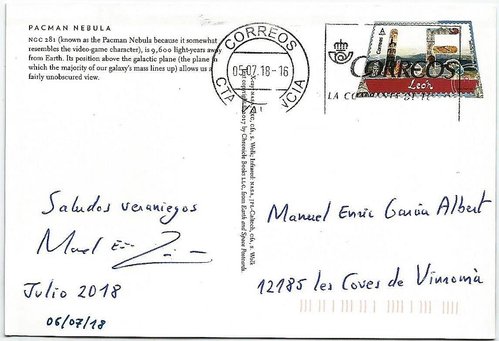 PACMAN NEBULA
NGC 281 (known as the Pacman Nebula because it somewhat
resembles the video-game character), is 9,600 light-years away
from Earth. Its position above the galactic plane (the plane in
which the majority of our galaxy's mass lines up) allows us a
fairly unobscured view.
CORREOS
05.07.18-16
CTA
VCIA
CORREOS
León
LA CO
copyright © 2017 by Chronicle Books LLC, from Earth and Space Postcards.
Saludos veraniegos
Julio 2018
06/07/18
Manuel Enric García Albert
12185 les Coves de Vinromà